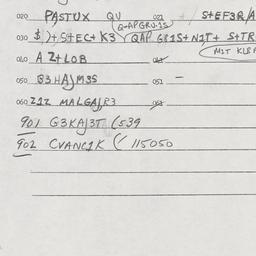 020 PASTUX QU 021 S+EF3R/A
Q-APGRU-1S
030 $)+S+EC+K3 QAP GR1S+N1T+S+TR
N1T KLB
040 A Z+LOB 041
050 G3HAJM3S 051 –
060 Z1Z MALGAJR3 061
901 G3KAJ3T (539
902 CVANC1K ( 115050